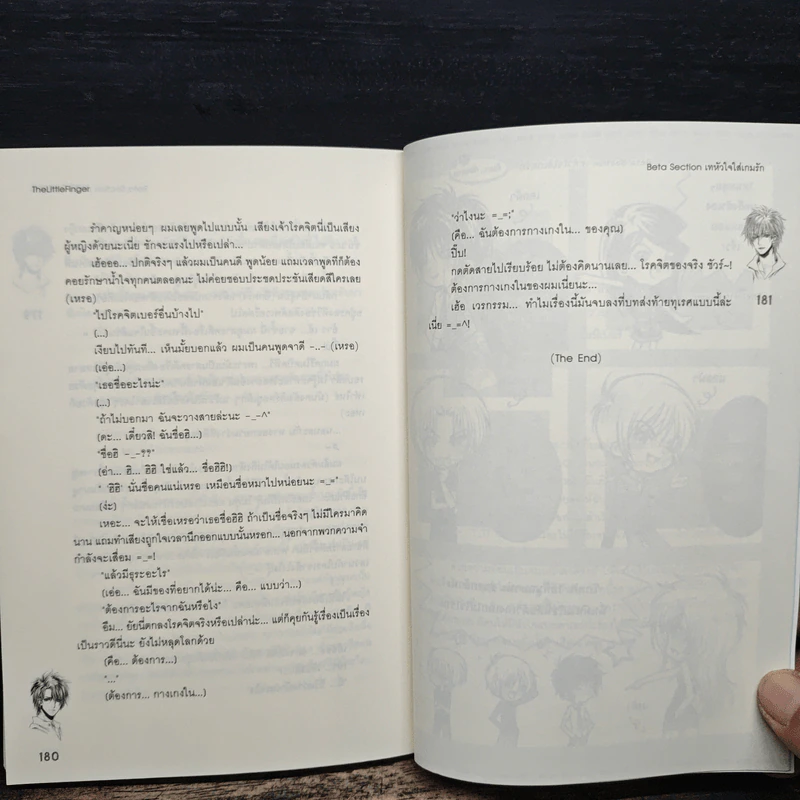 TheLittleFinger
รำคาญหน่อยๆ ผมเลยพูดไปแบบนั้น เสียงเจ้าโรคจิตนี่เป็นเสียง
ผู้หญิงด้วยนะเนี่ย ชักจะแรงไปหรือเปล่า...
เฮ้ออออ... ปกติจริงๆ แล้วผมเป็นคนดี พูดน้อย แถมเวลาพูดทีก็ต้อง
คอยรักษาน้ำใจทุกคนตลอดนะ ไม่ค่อยชอบประชดประชันเสียดสีใครเลย
(เหรอ)
"ไปโรคจิตเบอร์อื่นบ้างไป"
(...)
เงียบไปทันที... เห็นมั้ยบอกแล้ว ผมเป็นคนพูดจาดี -..- (เหรอ)
(เอ่อ...)
"เธอชื่ออะไรน่ะ"
(...)
"ถ้าไม่บอกมา ฉันจะวางสายล่ะนะ -_-^"
(ดะ... เดี๋ยวสิ! ฉันชื่อฮิ...)
"ชื่อฮิ -_-??"
(อ่า... ฮิ... ฮิฮิ ใช่แล้ว... ชื่อฮิฮิ!)
" 'ฮิฮิ' นั่นชื่อคนแน่เหรอ เหมือนชื่อหมาไปหน่อยนะ =_="
(ง่ะ)
เหอะ... จะให้เชื่อเหรอว่าเธอชื่อฮิฮิ ถ้าเป็นชื่อจริงๆ ไม่มีใครมาคิด
นาน แถมทำเสียงถูกใจเวลานึกออกแบบนั้นหรอก... นอกจากพวกความจำ
กำลังจะเสื่อม =_=!
"แล้วมีธุระอะไร"
(เอ่อ... ฉันมีของที่อยากได้น่ะ... คือ... แบบว่า...)
"ต้องการอะไรจากฉันหรือไง"
อืม... ยัยนี่ตกลงโรคจิตจริงหรือเปล่าน่ะ... แต่ก็คุยกันรู้เรื่องเป็นเรื่อง
เป็นราวดีนี่นะ ยังไม่หลุดโลกด้วย
(คือ... ต้องการ...)
"..."
(ต้องการ... กางเกงใน...)
180
Beta Section เทหัวใจใส่เกมรัก
"ว่าไงนะ =_=;"
(คือ... ฉันต้องการกางเกงใน... ของคุณ)
ปิ๊บ!
กดตัดสายไปเรียบร้อย ไม่ต้องคิดนานเลย... โรคจิตของจริง ชัวร์~!
ต้องการกางเกงในของผมเนี่ยนะ...
เฮ้อ เวรกรรม... ทำไมเรื่องนี้มันจบลงที่บทส่งท้ายทุเรศแบบนี้ล่ะ
เนี่ย =_=^!
(The End)
181